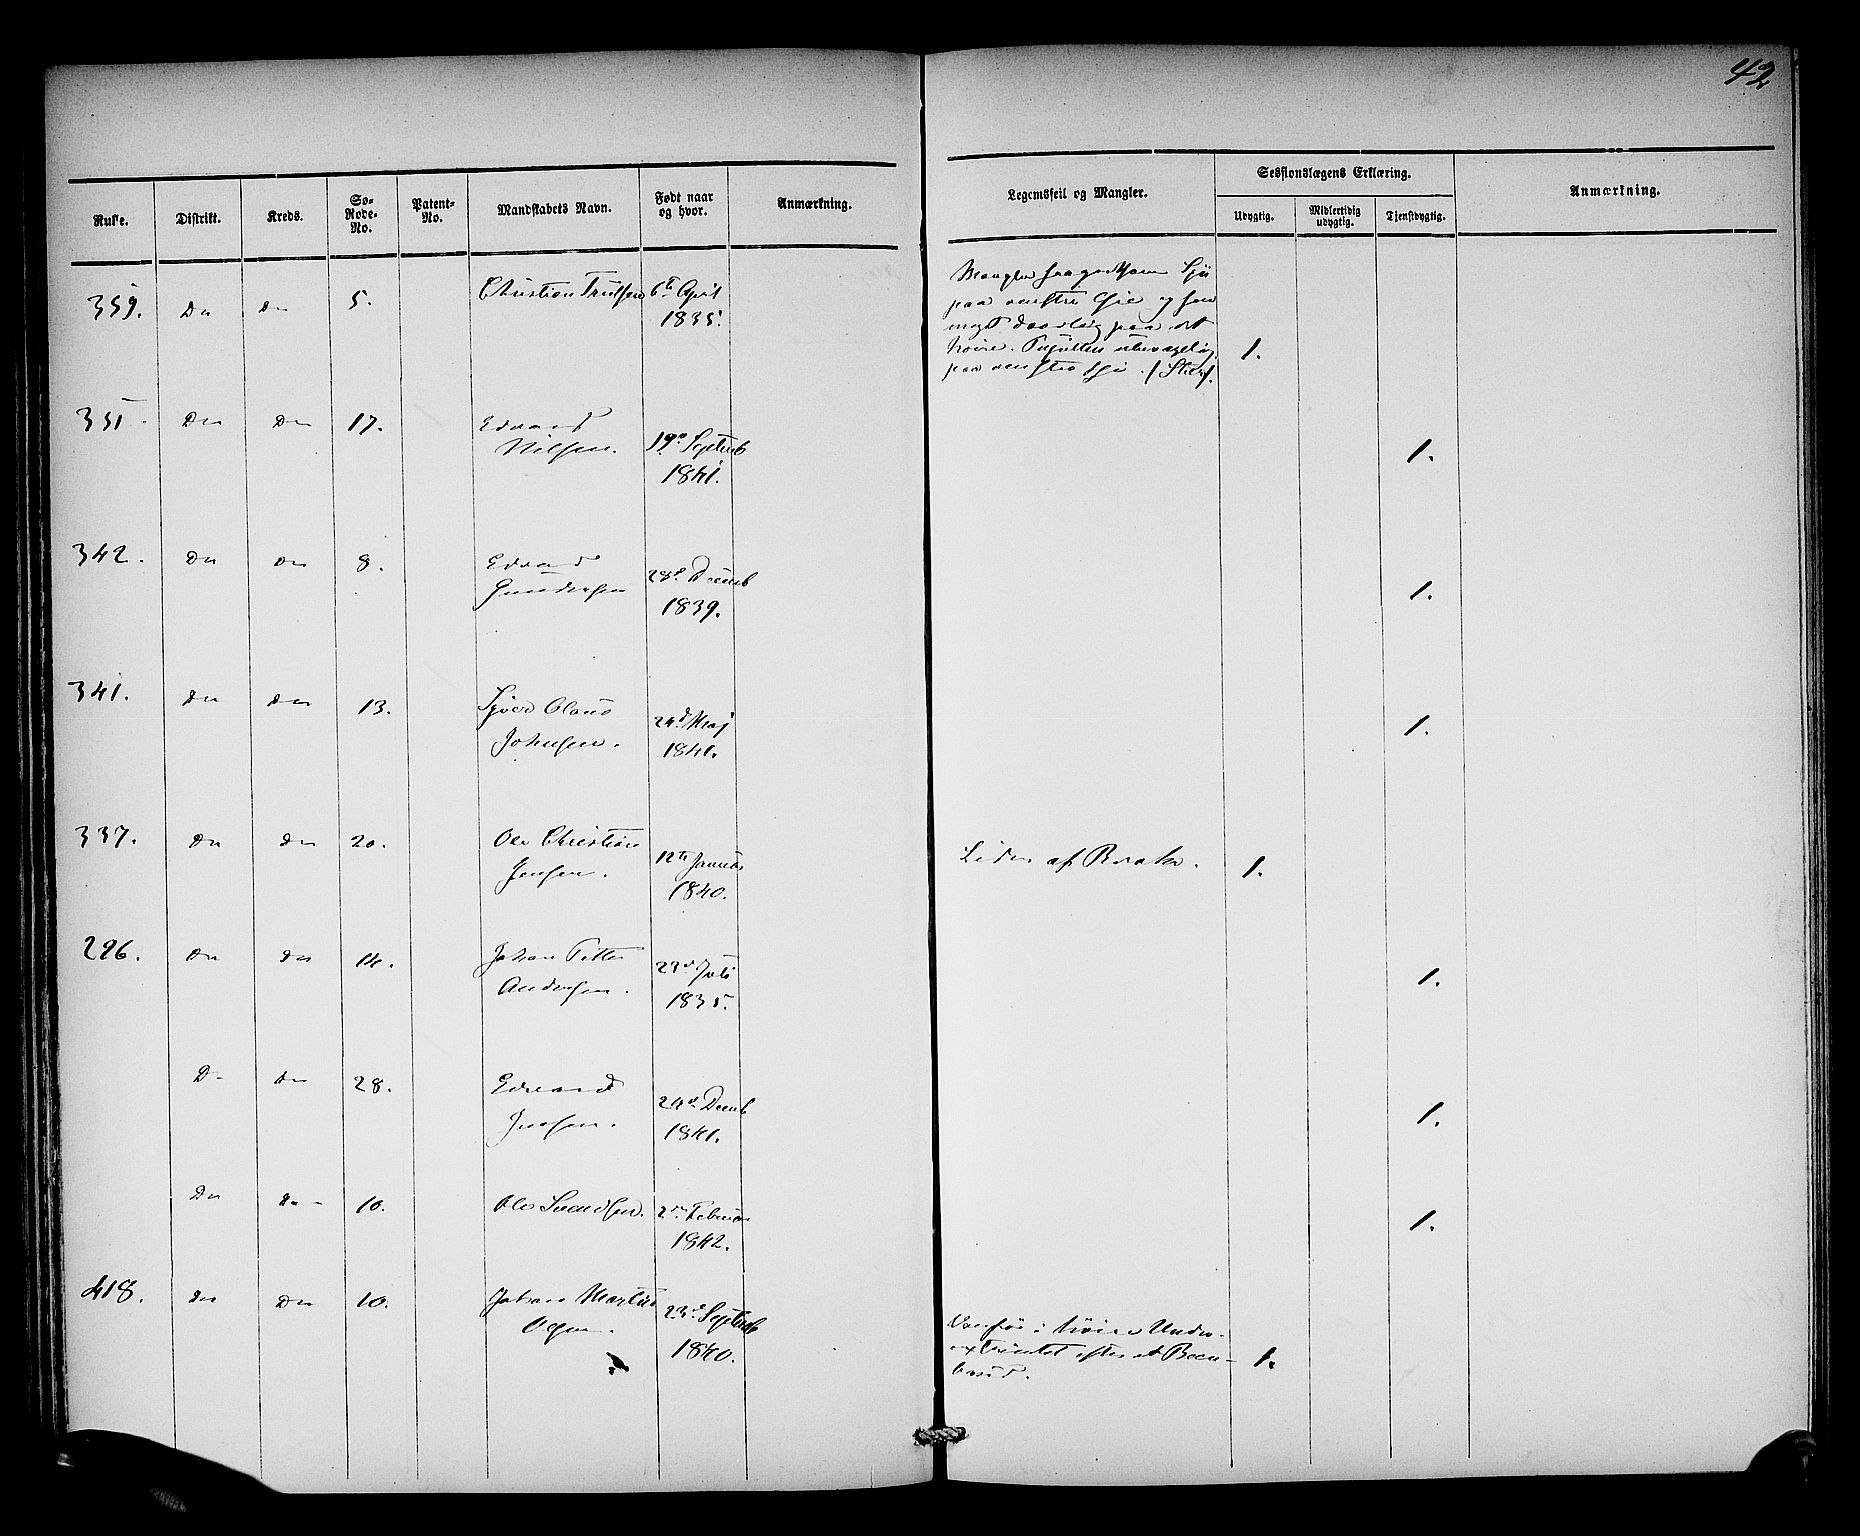 42
Rulle. Distrikt. Kreds. Sø-Rode-No. Patent-No. Mandskabets Navn. Født naar og hvor. Anmærkning. Legemsfeil og Mangler. Sessionslægens Erklæring. Anmærkning.
Udygtig. Midlertidig udygtig. Tjenstdygtig.
359. Do Do 5. Christian Trulsen 6te April
1835.
paa venstre Øie og
meget daarlig paa det
høire. Pupillen ubevægelig
paa venstre Øie. 1.
351. Do Do 17. Edvard
Nilsen. 19de Septemb
1841. 1.
342. Do Do 8. Edvard
Gundersen 28de Decemb
1839. 1.
341. Do Do 13. Syver Olaus
Johnsen. 24de Maj
1841. 1.
337. Do Do 20. Ole Christian
Jensen. 12te Januar
1840. Lider af Brok. 1.
296. Do Do 14. Johan Petter
Andersen. 1835. 1.
Do Do 28. Edvard
Jensen. 24de Decemb
1841. 1.
Do Do 10. Ole Svendsen. 2den Februar
1842. 1.
418. Do Do 10. Johan Martin
Olsen. 23de Septemb
1840. Vanfør i høire Under-
extremitet efter et Been-
brud. 1.